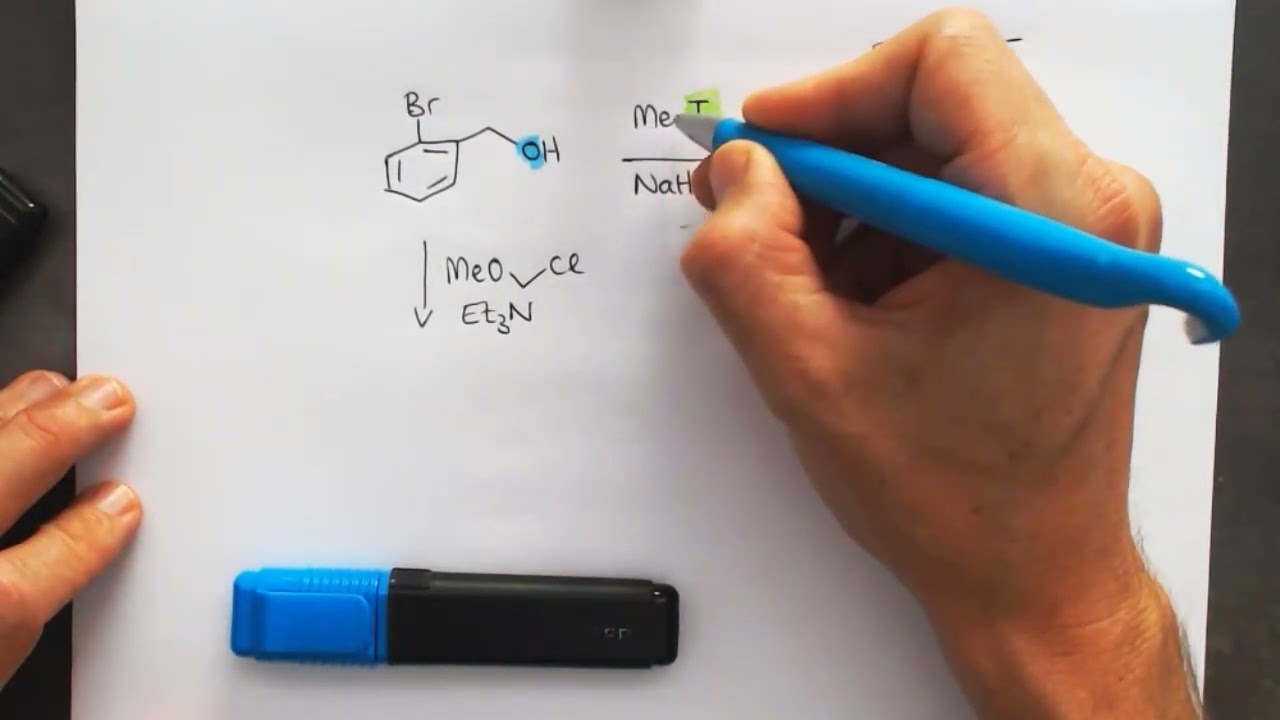 Br
OH
MeI
NaH
MeO Cl
Et₃N